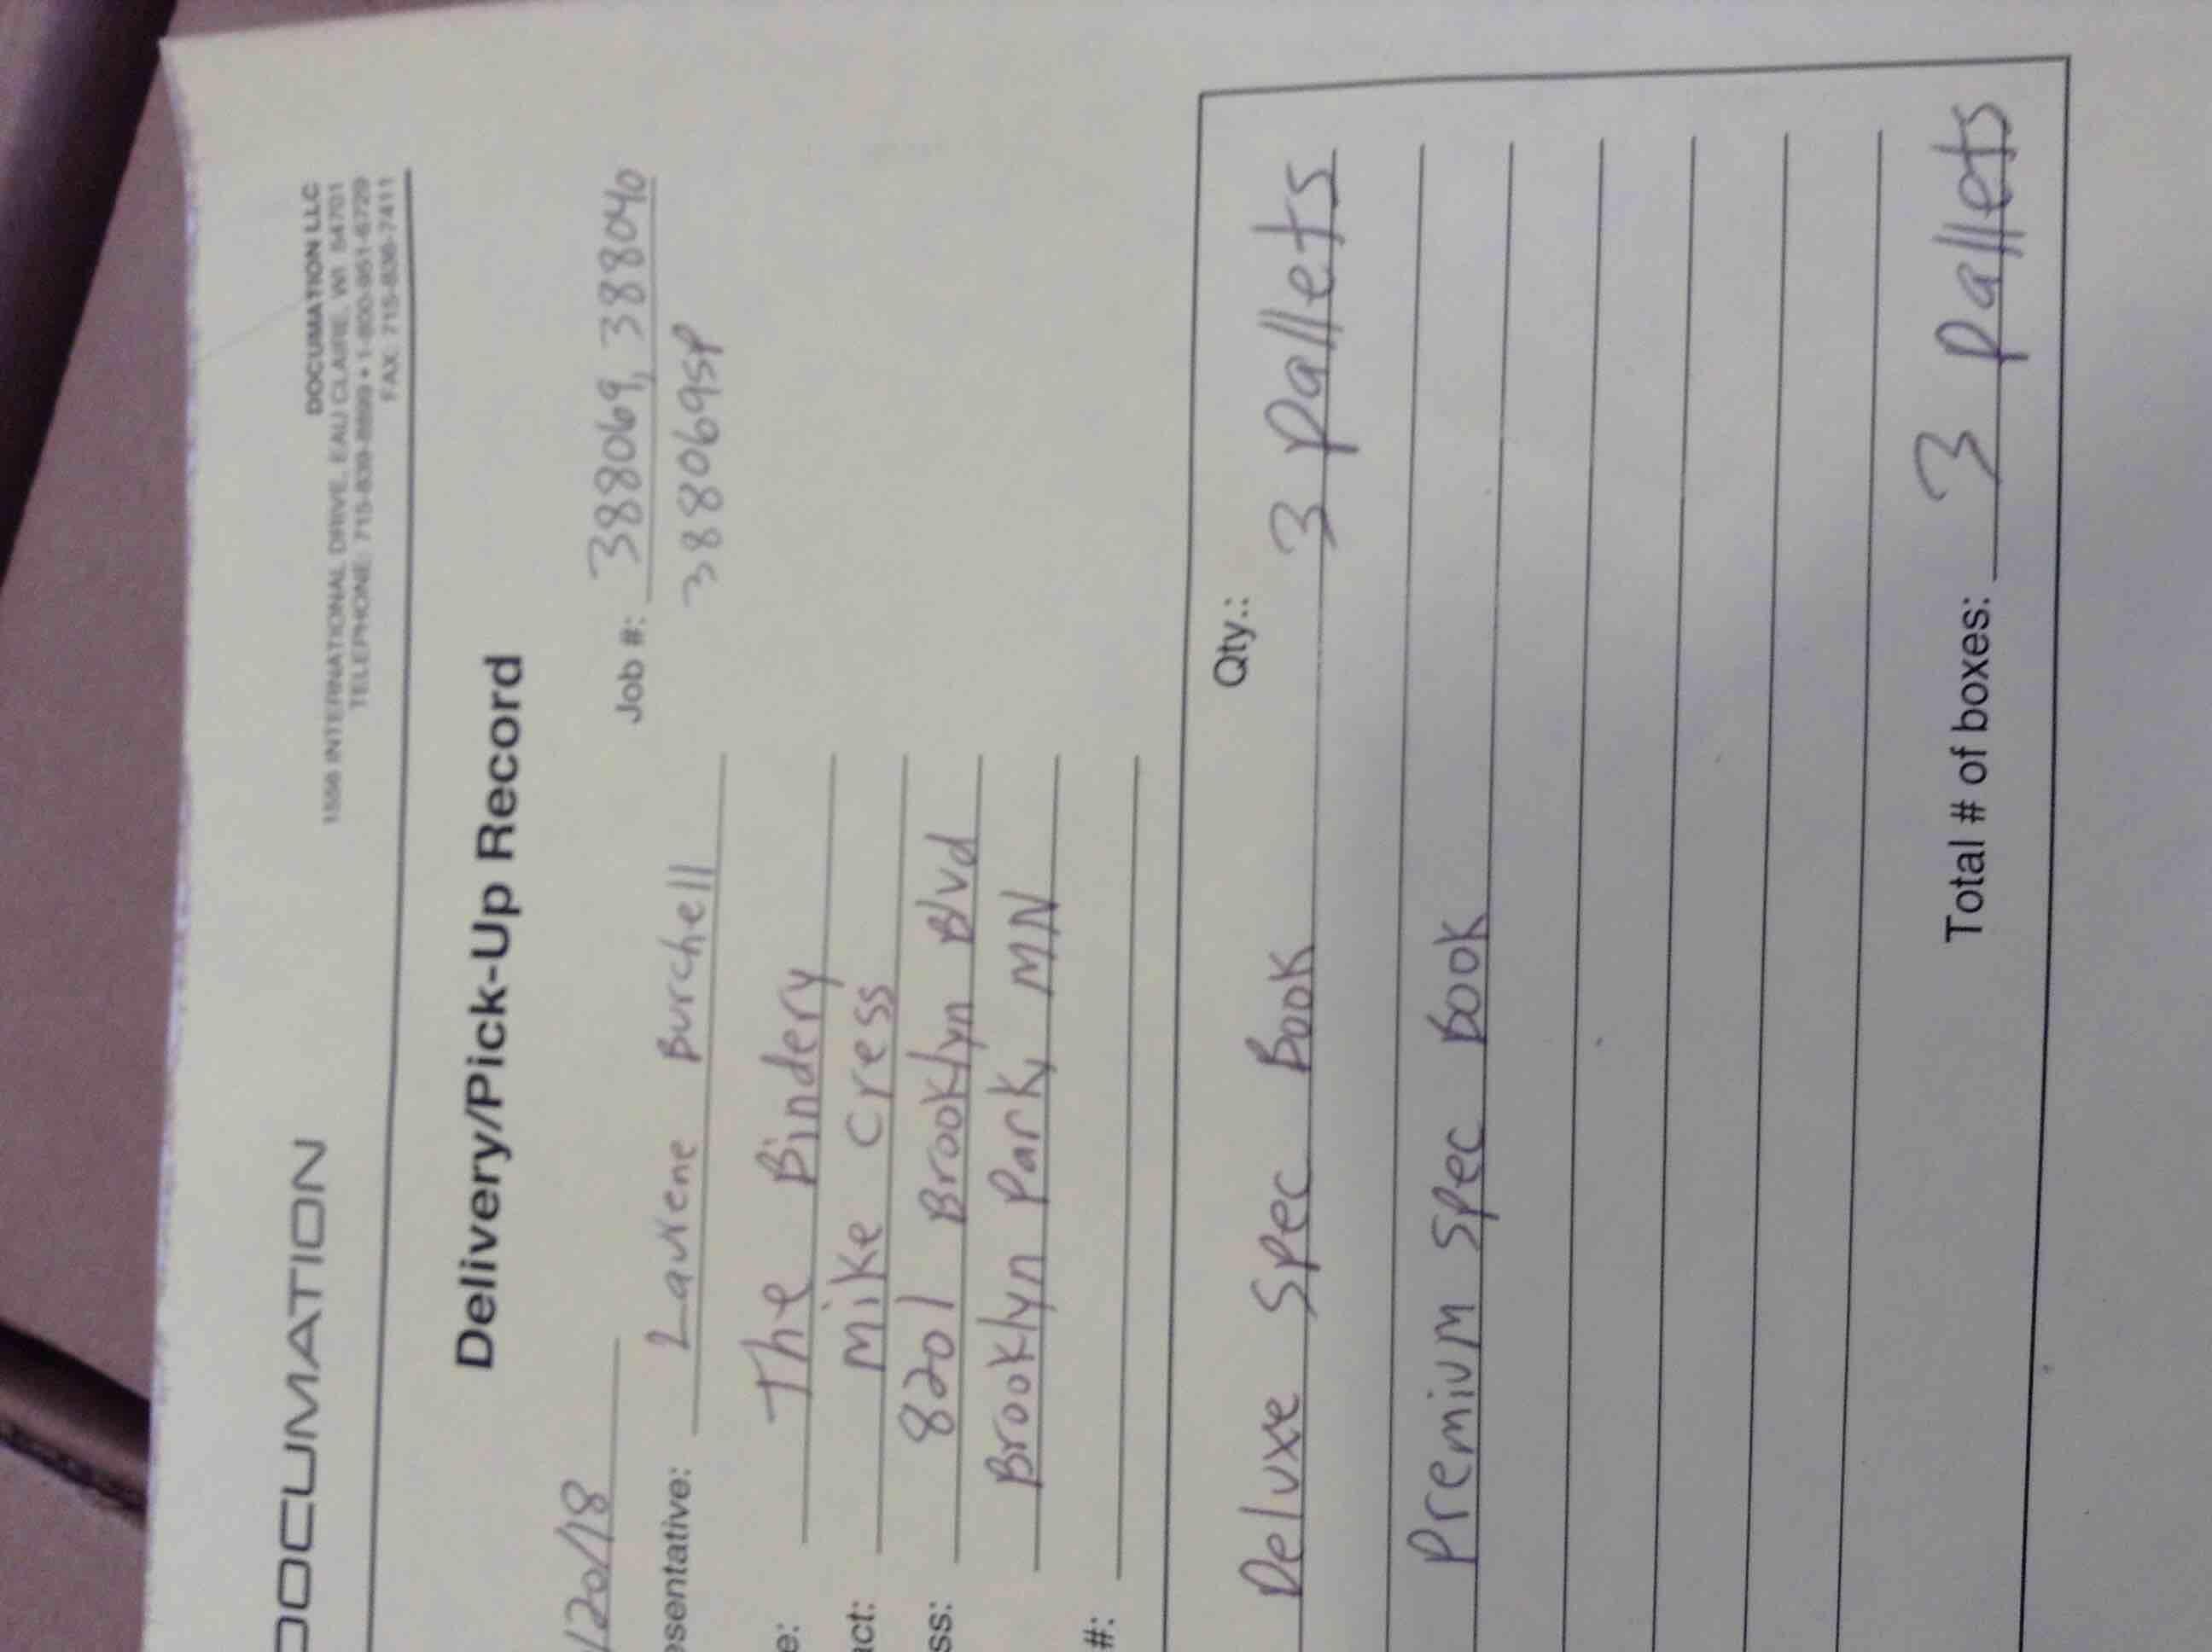 DOCUMATION
DOCUMATION LLC
INTERNATIONAL DRIVE, EAU CLAIRE, WI 54701
TELEPHONE: 715-839-8899 • 1-800-951-6729
FAX: 715-836-7411
Delivery/Pick-Up Record
/20/18
Job #: 388069, 388040
esentative: Laurene Burchell
388069SP
e: The Bindery
act: Mike Cress
ss: 8201 Brooklyn Blvd
Brooklyn Park, MN
#:
Qty.:
Deluxe Spec Book 3 Pallets
Premium Spec Book
Total # of boxes: 3 Pallets